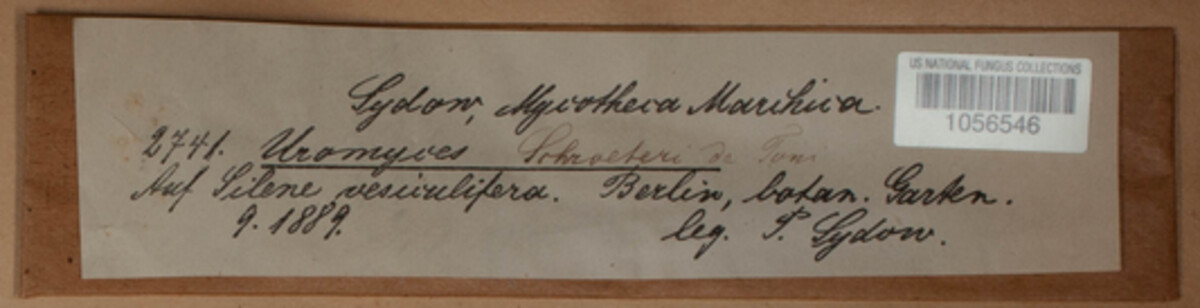 Sydow, Mycotheca Marchica.
US NATIONAL FUNGUS COLLECTIONS
1056546
2741. Uromyces Schroeteri de Toni
Auf Silene vesiculifera. Berlin, botan. Garten.
9. 1889. leg. P. Sydow.